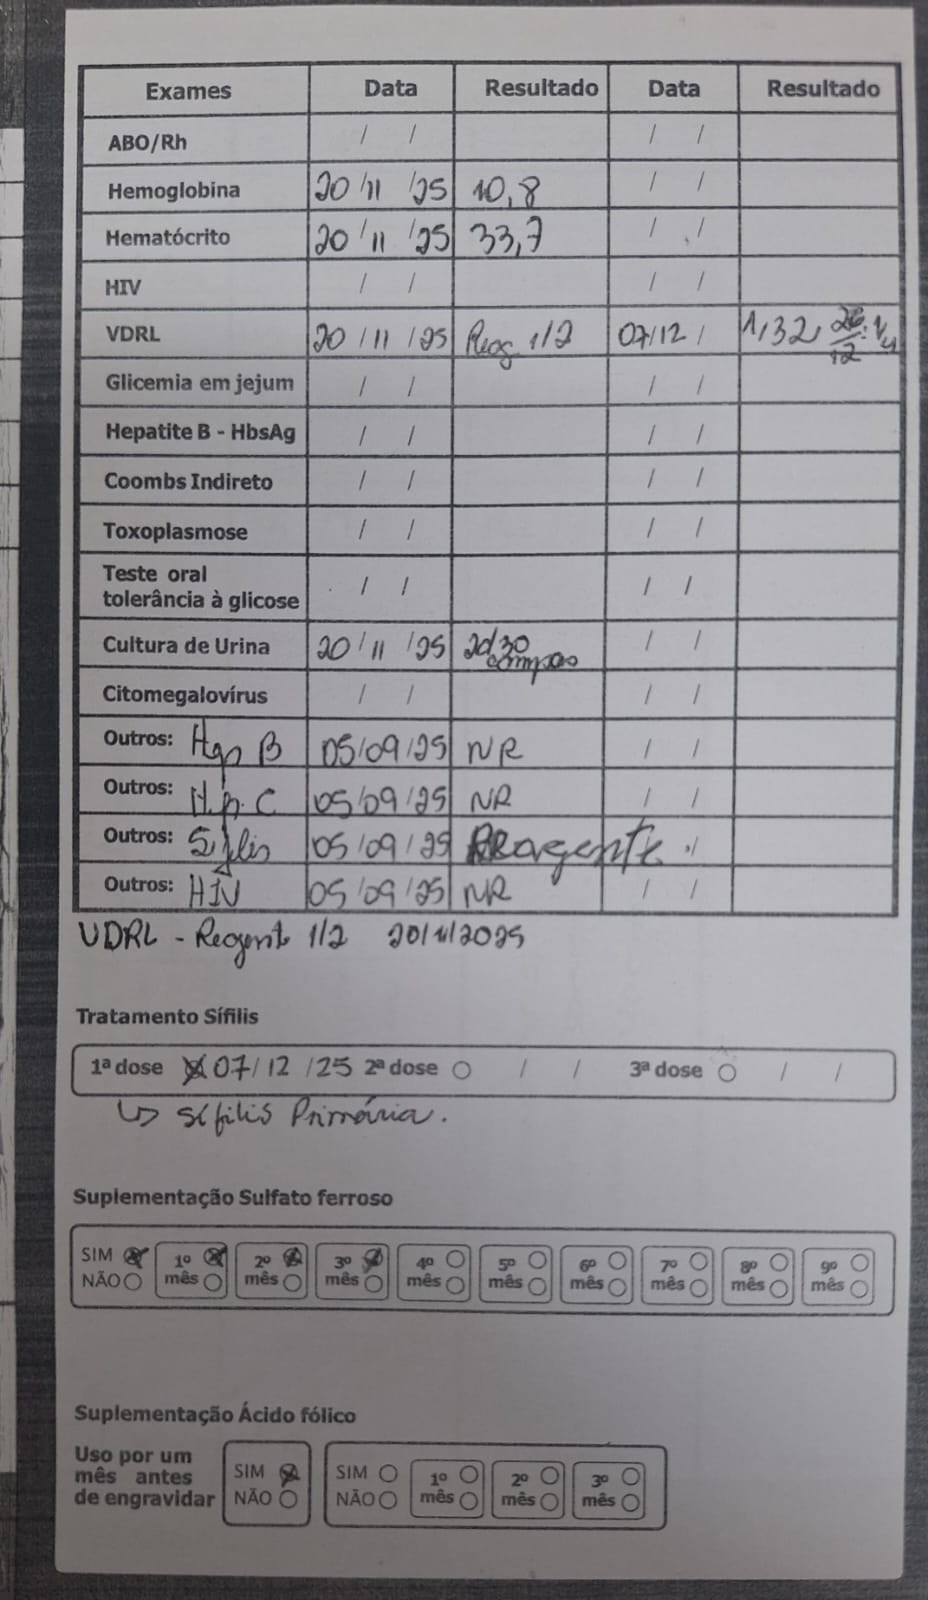 Exames Data Resultado Data Resultado
ABO/Rh / / / /
Hemoglobina 20/11/25 10,8 / /
Hematócrito 20/11/25 33,7 / /
HIV / / / /
VDRL 20/11/25 Reag 1/2 07/12/ 1,32, 26/12: 1/4
Glicemia em jejum / / / /
Hepatite B - HbsAg / / / /
Coombs Indireto / / / /
Toxoplasmose / / / /
Teste oral
tolerância à glicose / / / /
Cultura de Urina 20/11/25 / /
Citomegalovírus / / / /
Outros: B 05/09/25 NR / /
Outros: C 05/09/25 NR / /
Outros: Sífilis 05/09/25 Reagente /
Outros: HIV 05/09/25 NR / /
VDRL - Reagent 1/2 20/11/2025
Tratamento Sífilis
1ª dose 07/12/25 2ª dose / / 3ª dose / /
↳ sífilis Primária.
Suplementação Sulfato ferroso
SIM 1º 2º 3º 4º 5º 6º 7º 8º 9º
NÃO mês mês mês mês mês mês mês mês mês
Suplementação Ácido fólico
Uso por um
mês antes SIM SIM 1º 2º 3º
de engravidar NÃO NÃO mês mês mês